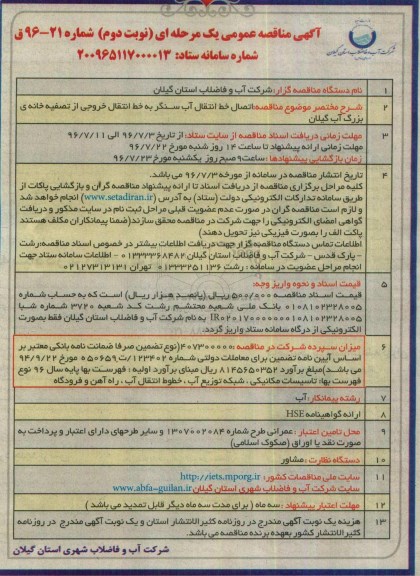 آگهی مناقصه عمومی یک مرحله ای (نوبت دوم) شماره ۲۱-۹۶ق
شماره سامانه ستاد: ۲۰۰۹۶۵۱۱۷۰۰۰۰۱۳
شرکت آب و فاضلاب استان گیلان
۱ نام دستگاه مناقصه گزار: شرکت آب و فاضلاب استان گیلان
۲ شرح مختصر موضوع مناقصه: اتصال خط انتقال آب سنگر به خط انتقال خروجی از تصفیه خانه ی
بزرگ آب گیلان
۳ مهلت زمانی دریافت اسناد مناقصه از سایت ستاد: از تاریخ ۹۶/۷/۳ الی ۹۶/۷/۱۱
مهلت زمانی ارائه پیشنهاد تا ساعت ۱۴ روز شنبه مورخ ۹۶/۷/۲۲
زمان بازگشایی پیشنهادها: ساعت ۹ صبح روز یکشنبه مورخ ۹۶/۷/۲۳
۴ تاریخ انتشار مناقصه در سامانه از مورخه ۹۶/۷/۳ می باشد.
کلیه مراحل برگزاری مناقصه از دریافت اسناد تا ارائه پیشنهاد مناقصه گران و بازگشایی پاکات از
طریق سامانه تدارکات الکترونیکی دولت (ستاد) به آدرس (www.setadiran.ir) انجام خواهد شد
و لازم است مناقصه گران در صورت عدم عضویت قبلی مراحل ثبت نام در سایت مذکور و دریافت
گواهی امضای الکترونیکی را جهت شرکت در مناقصه محقق سازند (ضمنا پیمانکاران مکلف هستند
پاکت الف را بصورت فیزیکی نیز تحویل دهند)
اطلاعات تماس دستگاه مناقصه گزار جهت دریافت اطلاعات بیشتر در خصوص اسناد مناقصه: رشت
- پارک قدس - شرکت آب و فاضلاب استان گیلان ۰۱۳۳۳۳۶۸۴۸۲ - اطلاعات سامانه ستاد جهت
انجام مراحل عضویت در سامانه: رشت ۰۱۳۳۳۲۵۱۱۳۶ تهران ۰۲۱۲۷۳۱۳۱۳۱
۵ قیمت اسناد و نحوه واریز وجه:
قیمت اسناد مناقصه ۵۰۰/۰۰۰ ریال (پانصد هزار ریال) است که به حساب شماره
۰۱۰۸۱۰۲۳۲۸۰۰۵ بانک ملی شعبه محتشم رشت کد شعبه ۳۷۲۰ شماره شبا
به نام شرکت آب و فاضلاب استان گیلان فقط بصورت
الکترونیکی از درگاه سامانه ستاد واریز گردد.
۶ میزان سپرده شرکت در مناقصه: ۴۰۷۳۰۰۰۰۰ (نوع تضمین صرفا ضمانت نامه بانکی معتبر بر
اساس آیین نامه تضمین برای معاملات دولتی شماره ۱۲۳۴۰۲/ت۵۰۶۵۹ه مورخ ۹۴/۹/۲۲
می باشد) مبلغ برآورد ۸۱۴۵۶۵۰۳۵۲ ریال مبنای برآورد اولیه: فهرست بها پایه سال ۹۶ نوع
فهرست بها: تاسیسات مکانیکی، شبکه توزیع آب، خطوط انتقال آب، راه آهن و فرودگاه
۷ رشته پیمانکار: آب
۸ ارائه گواهینامه HSE
۹ محل تامین اعتبار: عمرانی طرح شماره ۱۳۰۷۰۰۲۰۸۴ و سایر طرحهای دارای اعتبار و پرداخت به
صورت نقد یا اوراق (صکوک اسلامی)
۱۰ دستگاه نظارت: مشاور
۱۱ سایت ملی مناقصات کشور: http://iets.mporg.ir
سایت شرکت آب و فاضلاب شهری استان گیلان www.abfa-guilan.ir
۱۲ مهلت اعتبار پیشنهاد: سه ماه (برای مدت سه ماه دیگر قابل تمدید می باشد)
۱۳ هزینه یک نوبت آگهی مندرج در روزنامه کثیرالانتشار استان و یک نوبت آگهی مندرج در روزنامه
کثیرالانتشار کشور بعهده برنده مناقصه می باشد.
شرکت آب و فاضلاب شهری استان گیلان